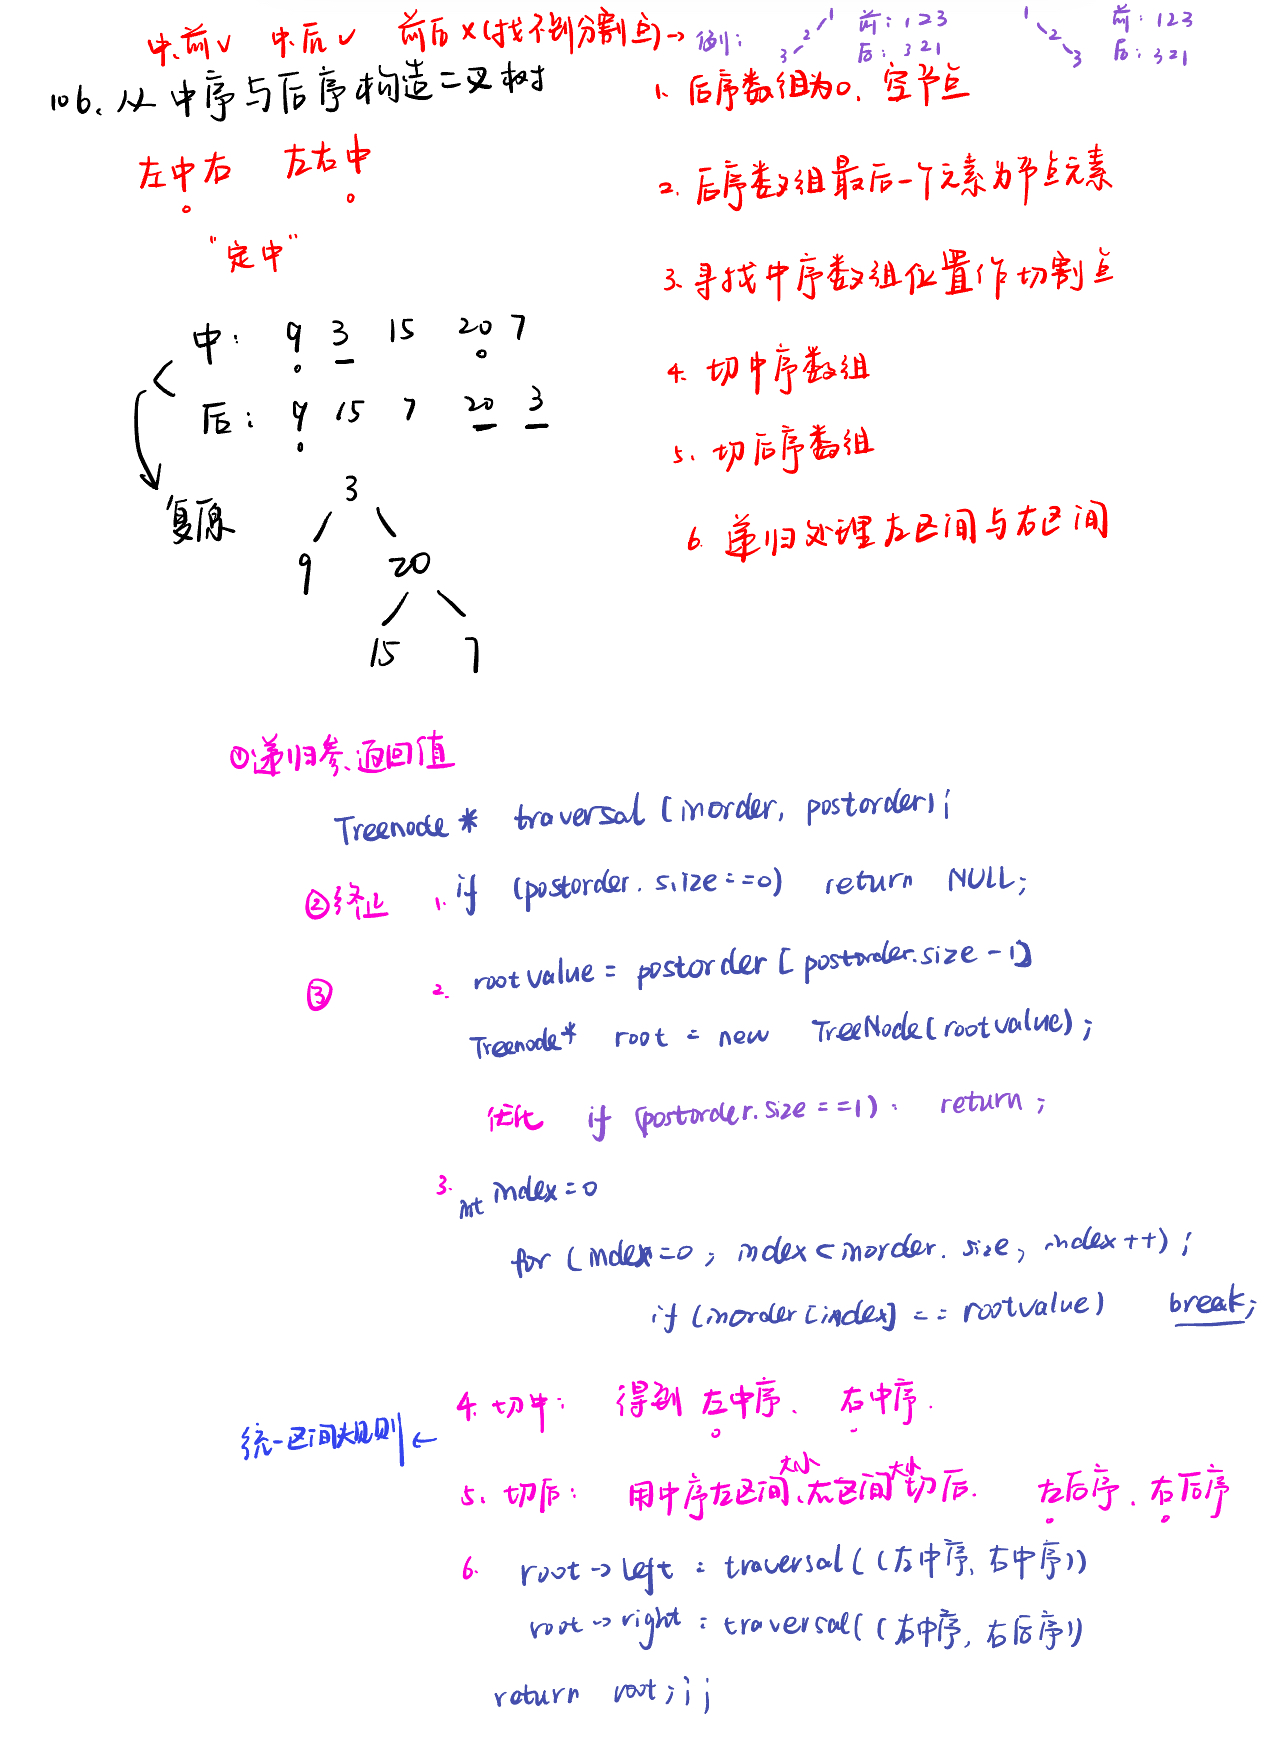 中、前√ 中后√ 前后×(找不到分割点)→ 例: 1 2 3 前: 1 2 3 后: 3 2 1 1 2 3 前: 1 2 3 后: 3 2 1
106. 从中序与后序构造二叉树
左中右 左右中
"定中"
中: 9 3 15 20 7
后: 9 15 7 20 3
复原
3
9 20
15 7
1、后序数组为0, 空节点
2. 后序数组最后一个元素为节点元素
3. 寻找中序数组位置作切割点
4. 切中序数组
5、切后序数组
6. 递归处理左区间与右区间
①递归参、返回值
Treenode* traversal (inorder, postorder);
②终止 1. if (postorder.size==0) return NULL;
③ 2. rootvalue = postorder[postorder.size-1]
Treenode* root = new TreeNode(rootvalue);
优化 if (postorder.size==1): return;
3. int index=0
for (index=0; index<inorder.size; index++);
if (inorder[index] == rootvalue) break;
4. 切中: 得到 左中序、右中序.
统一区间大规则 ←
5、切后: 用中序左区间大小、右区间大小切后. 左后序、右后序
6. root->left = traversal((左中序, 右中序))
root->right = traversal((右中序, 右后序))
return root;;;